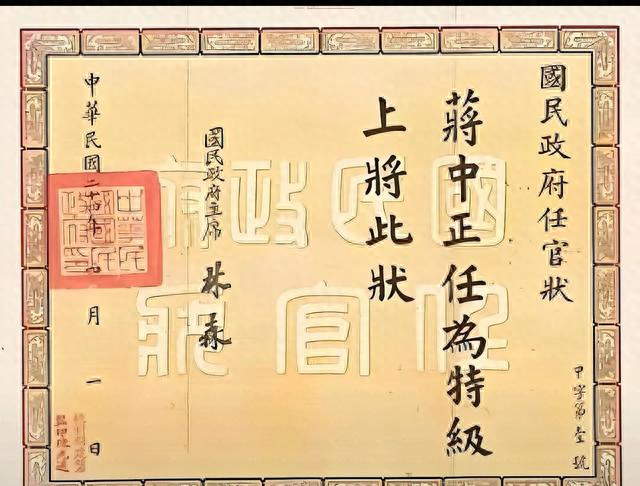 國民政府任官狀
蔣中正任為特級
上將此狀
國民政府主席 林森
中華民國二十四年 月一日
甲字第壹號
國民政府
任官狀